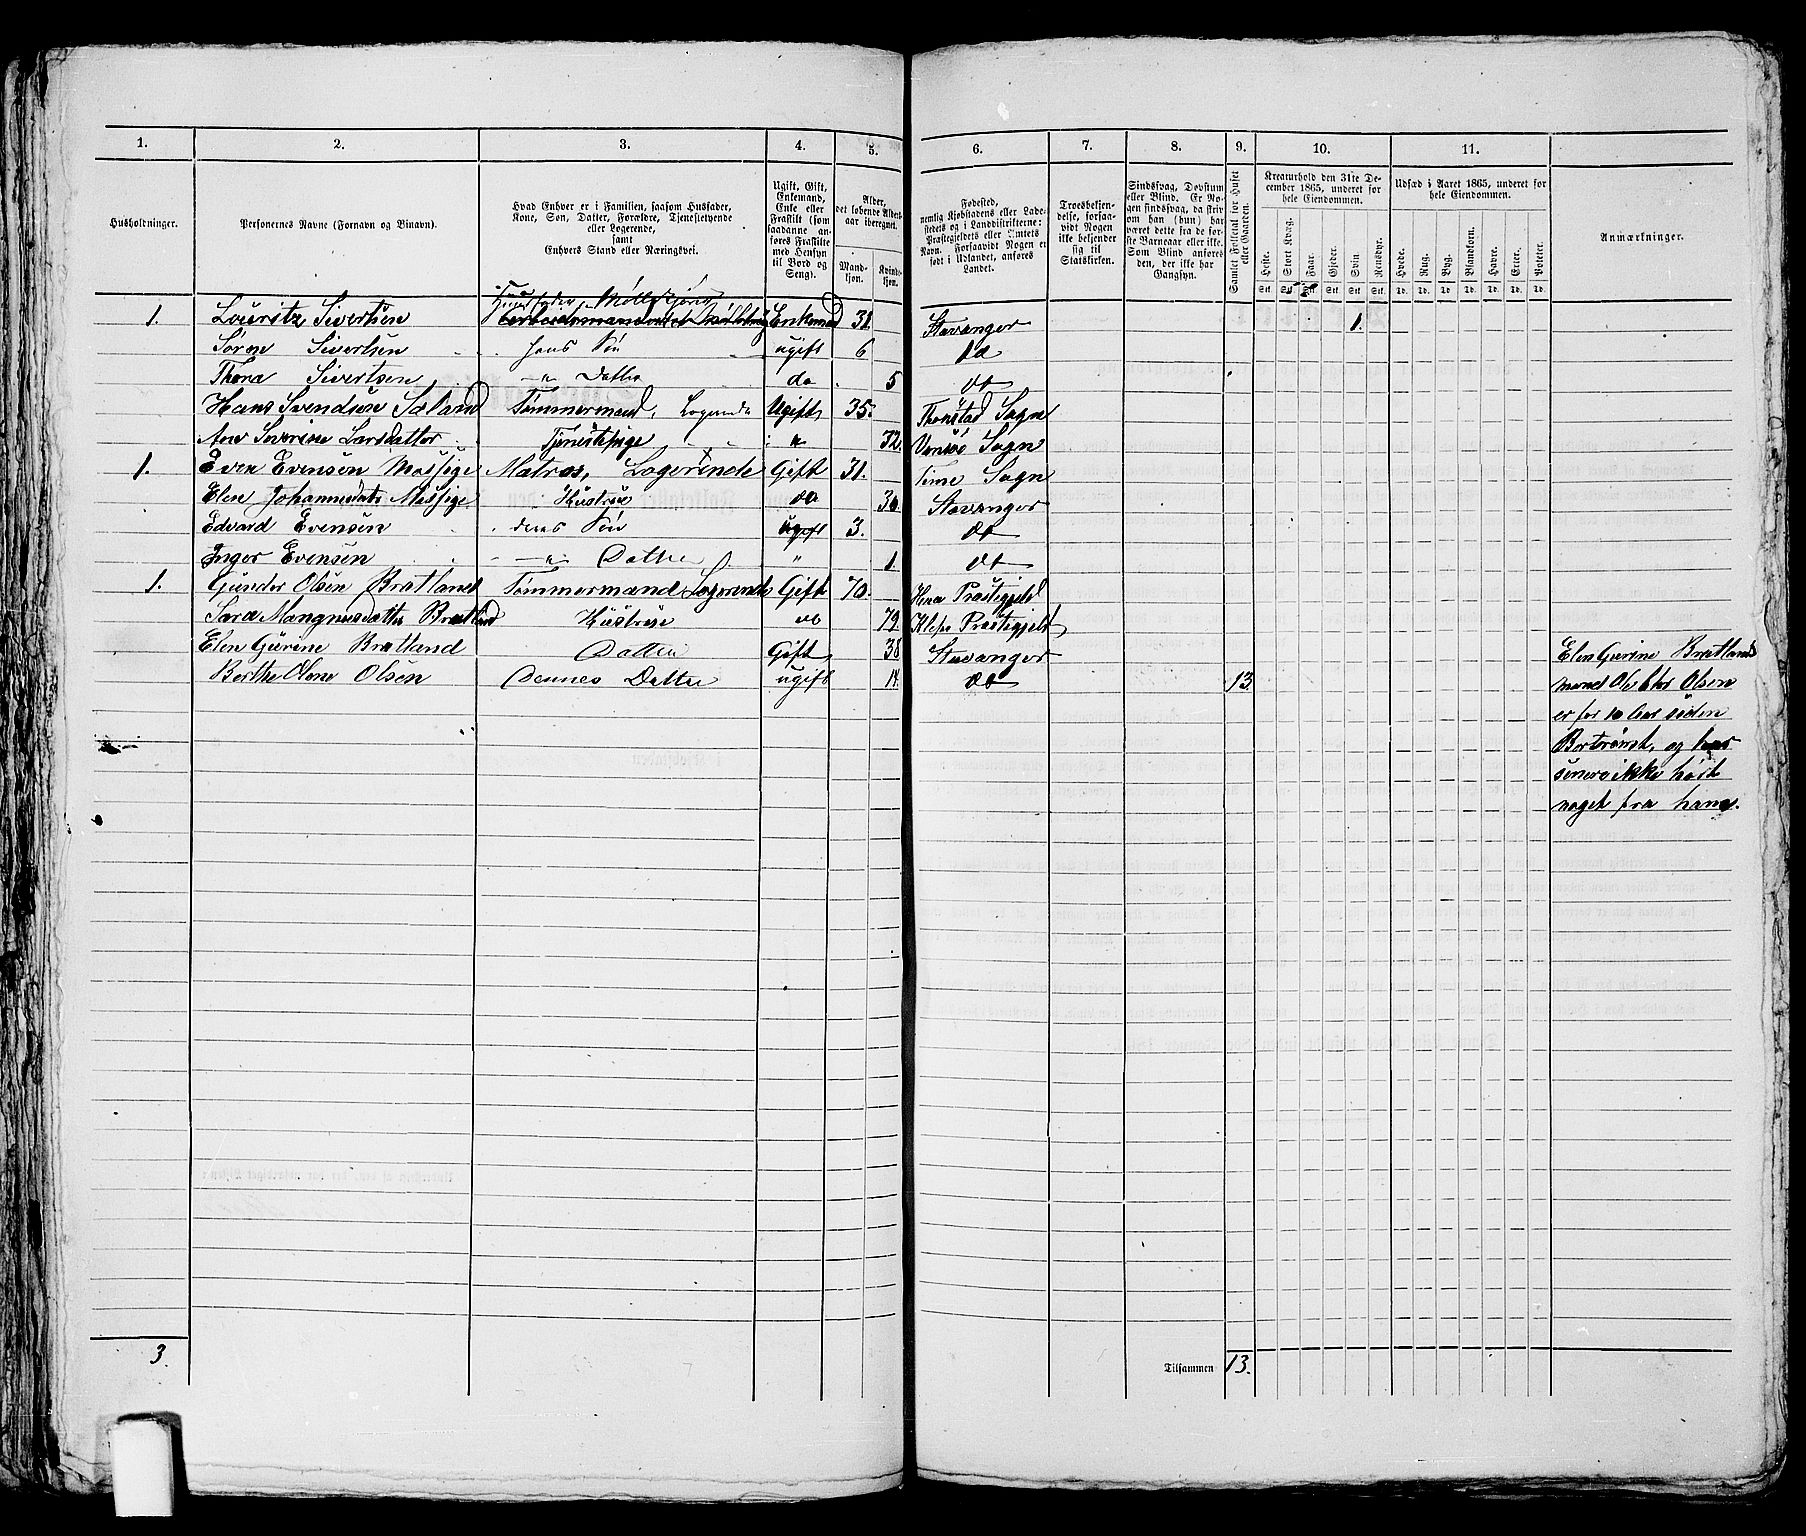 1. 2. 3. 4. 5. 6. 7. 8. 9. 10. 11.
Husholdninger.
Personernes Navne (Fornavn og Binavn).
Hvad Enhver er i Familien, saasom Husfader,
Kone, Søn, Datter, Forældre, Tjenestetyende
eller Logerende,
samt
Enhvers Stand eller Næringsvei.
Ugift, Gift,
Enkemand,
Enke eller
Fraskilt (som
saadanne an-
føres Fraskilte
med Hensyn
til Bord og
Seng).
Alder,
det løbende Alders-
aar iberegnet.
Mand-
kjøn.
Kvinde-
kjøn.
Fødested,
nemlig Kjøbstadens eller Lade-
stedets og i Landdistrikterne:
Præstegjeldets eller Amtets
Navn. Forsaavidt Nogen er
født i Udlandet, anføres
Landet.
Troesbekjen-
delse, forsaa-
vidt Nogen
ikke bekjender
sig til
Statskirken.
Sindssvag, Døvstum
eller Blind. Er No-
gen sindssvag, da skriv
om han (hun) har
været dette fra de før-
ste Barneaar eller ikke.
Som Blind anføres
den, der ikke har
Gangsyn.
Samlet Folketal for Huset
eller Gaarden.
Kreaturhold den 31te De-
cember 1865, underet for
hele Eiendommen.
Heste. Stort Kvæg. Faar. Gjeder. Sviin. Rensdyr.
Stk. Stk. Stk. Stk. Stk. Stk.
Udsæd i Aaret 1865, underet for
hele Eiendommen.
Hvede. Rug. Byg. Blandkorn. Havre. Erter. Poteter.
Td. Td. Td. Td. Td. Td. Td.
Anmærkninger.
1. Louritz Sivertsen Enkemd 31. Stavanger 1.
Søren Sivertsen hans Sön ugift 6 do
Thona Sivertsen " Datter do 5 do
Hans Svendsen Sæland Tømmermand, Logerende Ugift 35. Thonstad Sogn
Ane Severine Larsdatter Tjenestepige " 32. Sogn
1. Even Evensen Møssige Matros, Logerende Gift 31. Time Sogn
Elen Johannesdatr Møssige Hustrue do 30 Stavanger
Edvard Evensen deres Sön ugift 3. do
Inger Evensen " Datter " 1 do
1. Gunder Olsen Bratland Tømmermand Logerende Gift 70. Præstegjeld
Sara Mangnusdatter Bratland Hustrue do 79. Kleps Præstegjeld
Elen Gurine Bratland Datter Gift 38 Stavanger
Berthe Olene Olsen Dennes Datter ugift 14. do 13.
Elen Gurine Bratlands
mand Ole Olsen
er for 10 Aar siden
Bortrømt, og har
senere ikke hört
noget fra ham.
3. Tilsammen 13.